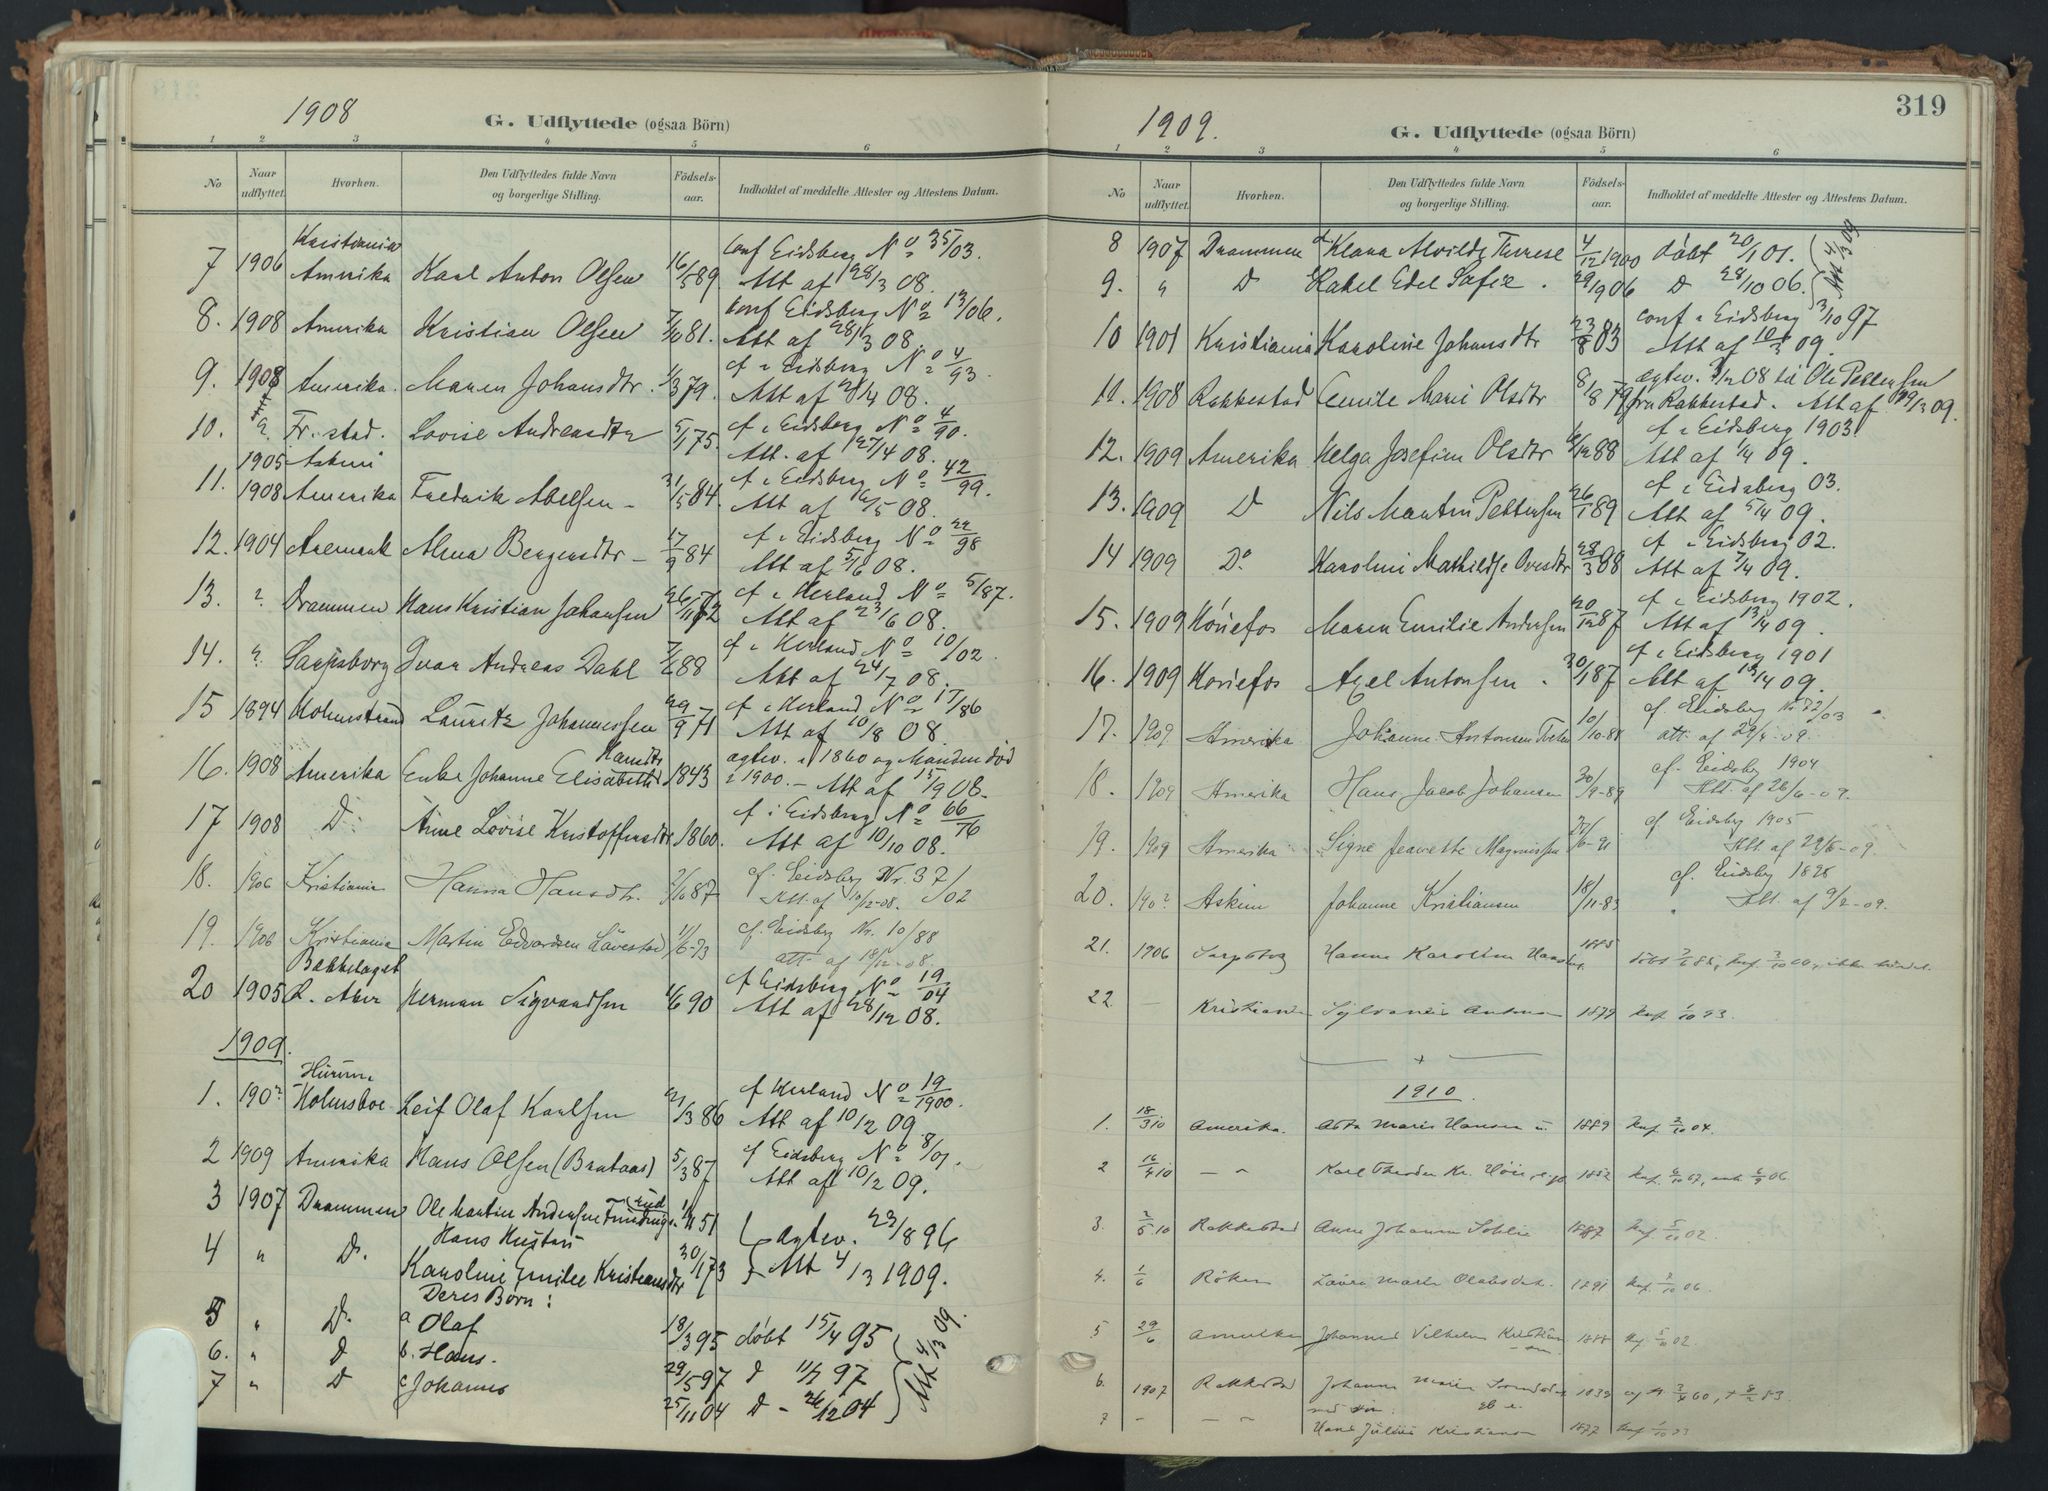 1908
G. Udflyttede (ogsaa Börn)
1 2 3 4 5 6
No
Naar udflyttet.
Hvorhen.
Den Udflyttedes fulde Navn og borgerlige Stilling.
Födsels-aar.
Indholdet af meddelte Attester og Attestens Datum.
Kristiania conf Eidsberg No 35/03.
7 1906 Amerika Karl Anton Olsen 16/5 89 Att af 28/3 08.
conf Eidsberg No 13/06.
8. 1908 Amerika Kristian Olsen 81. Att af 28/3 08.
cf i Eidsberg No 4/93
9. 1908 Amerika. Maren Johansdtr. 1/3 79. Att af 08.
cf i Eidsberg No 4/90.
10. Fr.stad. Lovise Andreasdtr 5/1 75. Att. af 27/4 08.
1905 Askim cf i Eidsberg No 42/99.
11. 1908 Amerika Fredrik Abelsen 31/5 84. Att af 08.
cf i Eidsberg No 22/98
12. 1904 Aremark Alma Bergersdtr 17/9 84 Att af 5/6 08.
cf i Herland No 5/87.
13. ? Drammen Hans Kristian Johansen 26/11 72 Att af 23/6 08.
cf i Herland No 10/02
14. ? Sarpsborg Ivar Andreas Dahl 88 Att af 24/7 08.
cf i Herland No 17/86
15 1894 Holmstrand Lauritz Johannessen 29/9 71 Att af 10/8 08
Hansdtr agtev. i 1860 og Manden död
16. 1908 Amerika Enke Johanne Elisabeth 1843 i 1900. – Att af 15/9 08.
cf i Eidsberg No 66/76
17 1908 D: Anne Lovise Kristoffersdtr 1860. Att af 10/10 08.
cf. Eidsberg Nr. 37/02
18. 1906 Kristiania Hanna Hansdtr. 87 Att. af 10/12-08.
cf. Eidsberg Nr. 10/88
19. 1906 Kristiania Martin Edvardsen Lövestad 11/6-73 att. af 18/12-08.
Bækkelaget cf Eidsberg No 19/04
20 1905 Ö. Aker Herman Sigvardsen 90 Att af 28/12 08.
1909.
Hurum. cf Herland No 19/1900.
1. 190? Holmsboe Leif Olaf Karlsen 21/3 86 Att af 10/2 09.
cf Eidsberg No 8/01.
2 1909 Amerika Hans Olsen (Brataas) 5/3 87 Att af 10/2 09.
3 1907 Drammen Ole Martin Andersen 51 agtev. 23/8 96
Hans Hustru
4 " D. Karoline Emilie Kristiansdtr 30/1 73 Att 4/3 1909.
Deres Börn:
5 " D. a Olaf 18/3 95 döbt 15/4 95
6. " D b. Hans. 29/5 97 d 11/7 97
7 " D c Johannes 25/11 04 D – 26/12 04
Att 4/3 09.
1909.
319
G. Udflyttede (ogsaa Börn)
1 2 3 4 5 6
No
Naar udflyttet.
Hvorhen.
Den Udflyttedes fulde Navn og borgerlige Stilling.
Födsels-aar.
Indholdet af meddelte Attester og Attestens Datum.
8 1907 Drammen d Klara Alvilde Therese 4/12 1900 döbt 20/1 01.
9. " D e Rakel Edel Sofie. 29/1 906 D 28/10 06.
Att 4/3 09
conf i Eidsberg 3/10 97
10 1901 Kristiania Karoline Johansdtr 23/8 83 Att af 10/3 09.
agtev. /12 08 til Ole Pettersen
11. 1908 Rakkestad Emilie Marie Olsdtr 8/8 79 fra Rakkestad. Att af 29/3 09.
cf i Eidsberg 1903
12. 1909 Amerika Helga Josefine Olsdtr 88 Att af 1/4 09.
cf i Eidsberg 03.
13. 1909 D Nils Martin Pettersen 26/1 89 Att af 5/4 09.
cf i Eidsberg 02.
14 1909 Do Karoline Mathilde 28/3 88 Att af 7/4 09.
cf i Eidsberg 1902.
15. 1909 Hönefos Maren Emilie Andersen 20/12 87 Att af 13/4 09.
cf i Eidsberg 1901
16. 1909 Hönefos Axel Antonsen. 30/1 87 Att af 13/4 09.
cf. Eidsberg Nr. 72/03
17. 1909 Amerika Johanne Antonsen 10/10-88 att. af 09.
cf. Eidsberg 1904
18. 1909 Amerika Hans Jacob Johansen 30/9-89 Att. af 26/6-09.
cf. Eidsberg 1905
19. 1909 Amerika Signe Jeanette Magnussen /6-91 Att. af 29/6-09.
cf. Eidsberg 1898
20. 190? Askim Johanne Kristiansen 18/11-83 Att. af 9/2-09.
21. 1906 Sarpsborg Hanna Karoline 1885
22. — Kristiania Sylvanie 1879 Knf. 1/10 93.
1910.
1. 18/3 10 Amerika. Asta Marie Hansen u. 1889 Knf. 2/10 04.
2 16/4 10 — " Karl Theodor Kr. 1852
3. 2/5 10 Rakkestad Anne Johanne 1887 Knf. 02.
4. 1/6 Röken Laura Marie Olausdtr. 1891 Knf. 06.
5 29/6 Amerika Johannes Vilhelm Kristiansen 1888 Knf. 02
6. 1907 Rakkestad Johanne Marie
7 — — " Hans Julius Kristiansen 1877 Knf. 93